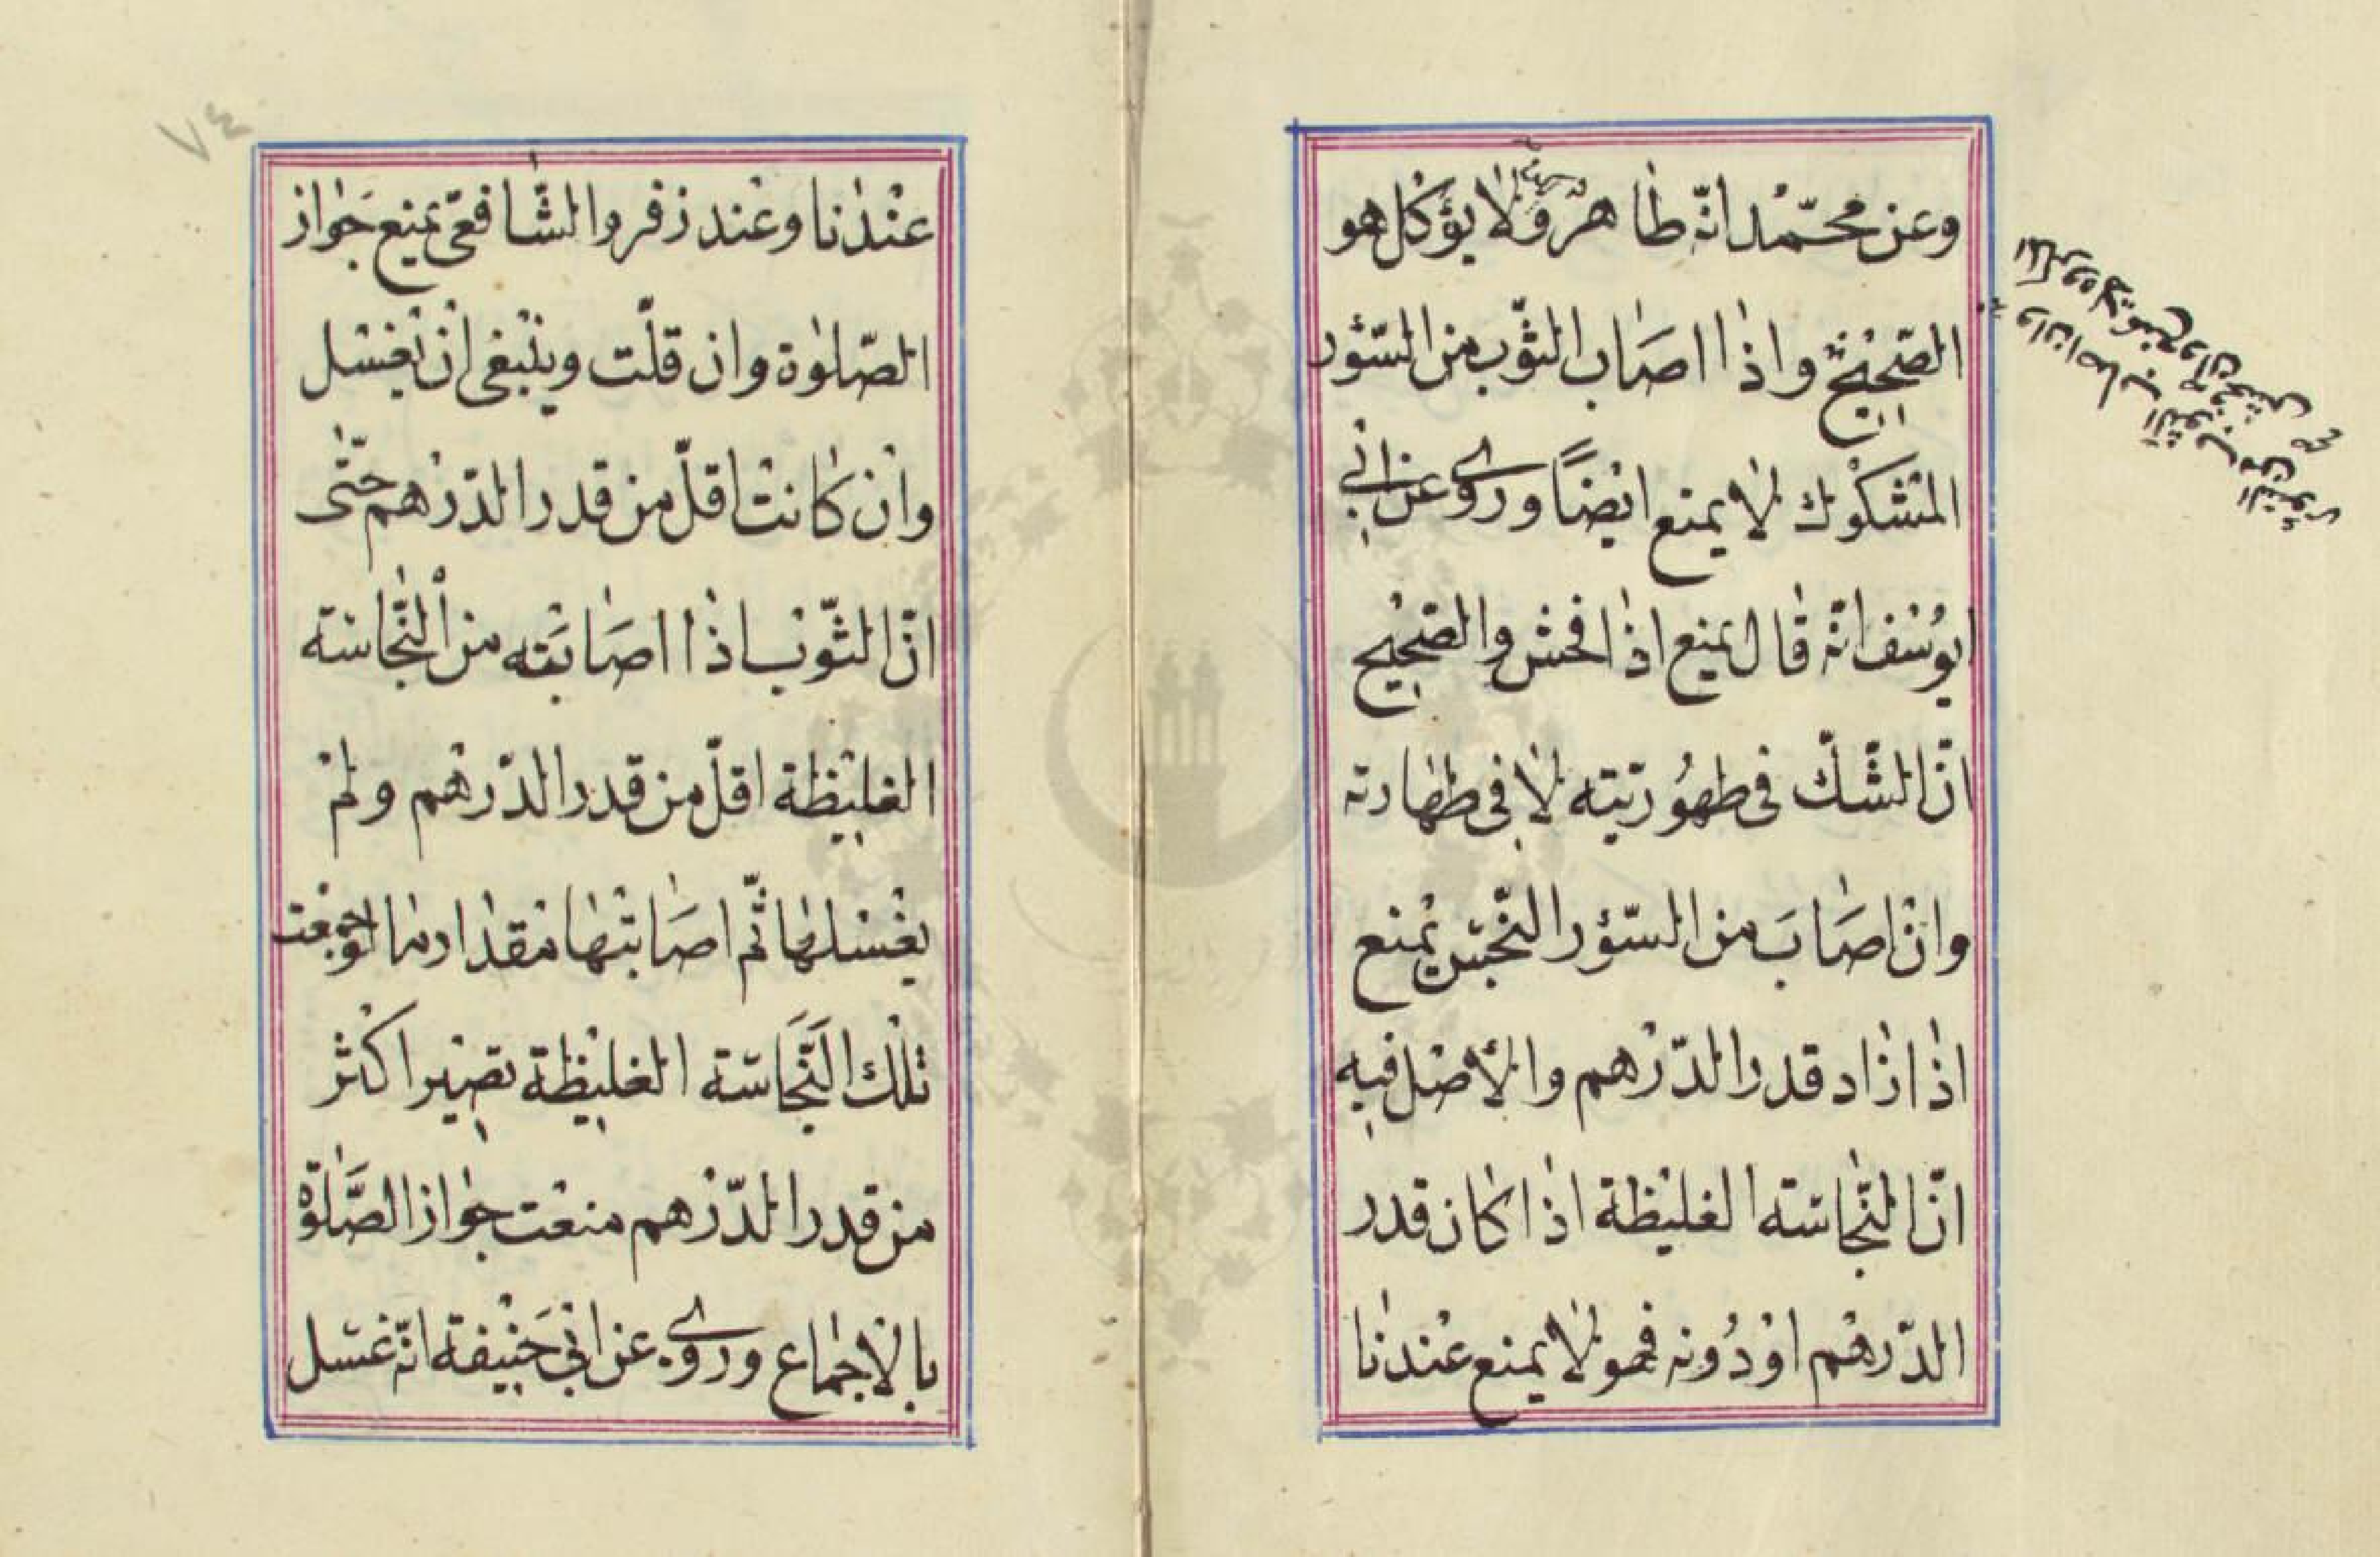 وعن محمّد انّه طاهر ولا يؤكل هو
الصّحيح واذا اصاب الثّوب من السّؤر
المشكوك لا يمنع ايضًا وروى عن ابى
يوسف انّه قال يمنع اذا فحش والصّحيح
انّ الشّكّ فى طهوريّته لا فى طهارته
وان اصاب من السّؤر النّجس يمنع
اذا زاد قدر الدّرهم والأصل فيه
انّ النّجاسته الغليظة اذا كان قدر
الدّرهم او دونه فهو لا يمنع عندنا
وان اصاب الثوب من السؤر
المكروه لا يمنع وان فحش صح
٧٤
عندنا وعند زفر والشّافعى يمنع جواز
الصّلوة وان قلّت وينبغى ان تغسل
وان كانت اقلّ من قدر الدّرهم حتّى
انّ الثّوب اذا اصابته من النّجاسته
الغليظة اقلّ من قدر الدّرهم ولم
يغسلها ثمّ اصابتها مقدار ما لو جمعت
تلك النّجاسته الغليظة تصير اكثر
من قدر الدّرهم منعت جواز الصّلوة
بالاجماع وروى عن ابى حنيفة انّه غسل